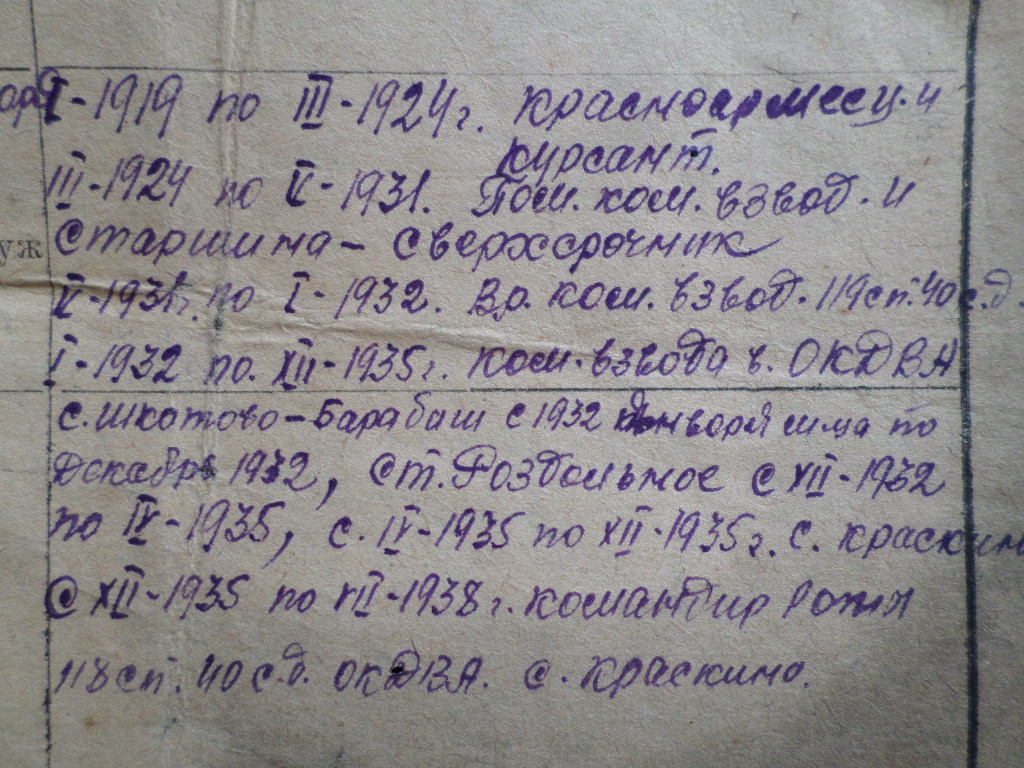 I-1919 по III-1924г. красноармеец. и
курсант.
III-1924 по V-1931. Пом. ком. взвод. и
старшина - сверхсрочник
уж
V-1931г. по I-1932. Вр. ком. взвод. 119 сп. 40 с.д.
I-1932 по. XII-1935г. ком. взвода в. ОКДВА
с. Шкотово-Барабаш с 1932 января м-ца по
декабрь 1932, ст. Роздольное с XII-1932
по IV-1935, с. IV-1935 по XII-1935г. с. краскино
С XII-1935 по VII-1938г. командир роты
118 сп. 40 с.д. ОКДВА. с. Краскино.